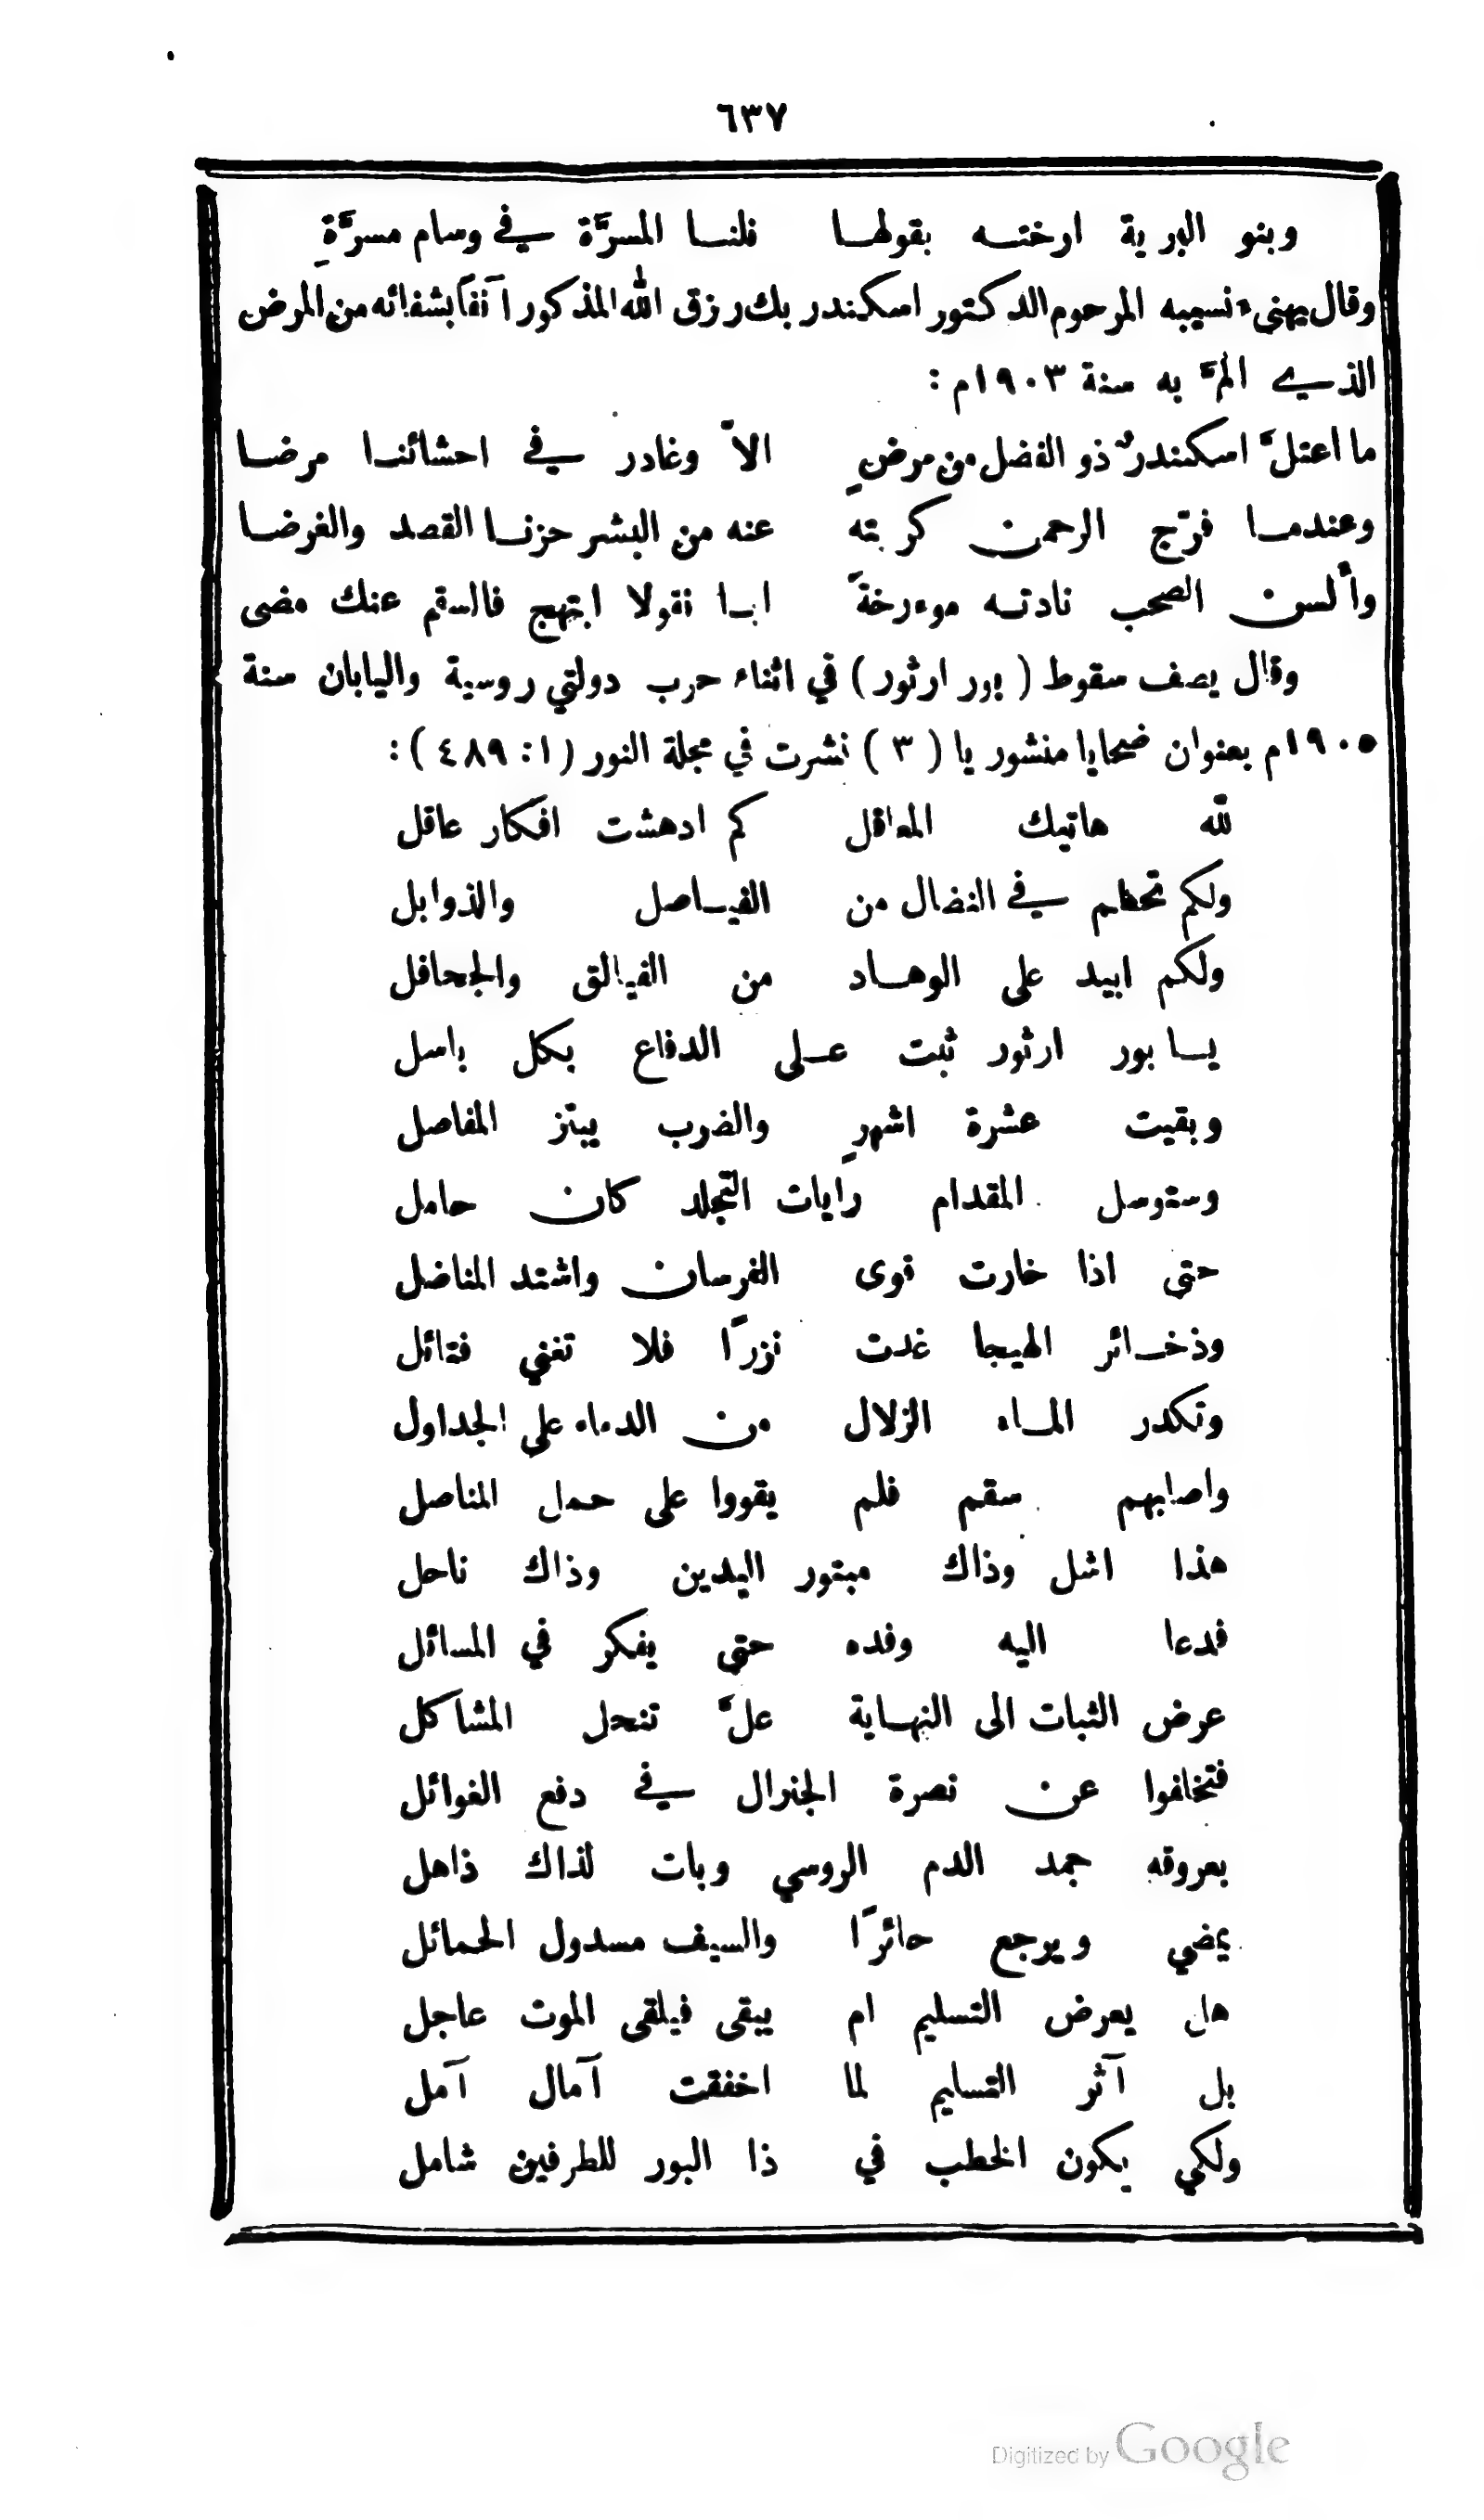 ٦٣٧
وبنو البرية ارخته بقولها فلنا المسرَّة في وسام مسرَّةِ
وقال يهنىء نسيبه المرحوم الدكتور اسكندر بك رزق الله المذكور آنفاً بشفائه من المرض
الذي المَّ به سنة ١٩٠٣م :
ما اعتلَّ اسكندرٌ ذو الفضل من مرضٍ الاَّ وغادر في احشائنا مرضا
وعندما فرّج الرحمن كربته عنه من البشر حزنا القصد والغرضا
وألسن الصحب نادته موءرخةً ابا نقولا ابتهج فالسقم عنك مضى
وقال يصف سقوط ( بور ارثور ) في اثناء حرب دولتي روسية واليابان سنة
١٩٠٥م بعنوان ضحايا منشوريا ( ٣ ) نشرت في مجلة النور ( ١ : ٤٨٩ ) :
لله هاتيك المعاقل كم ادهشت افكار عاقل
ولكم تحطم في النضال من الفياصل والذوابل
ولكم ابيد على الوهاد من الفيالق والجحافل
يا بور ارثور ثبت على الدفاع بكل باسل
وبقيت عشرة اشهرٍ والضرب يبتز المفاصل
وستوسل المقدام رايات التجلد كان حامل
حتى اذا خارت قوى الفرسان واشتد المناضل
وذخائر الهيجا غدت نزرًا فلا تغني فتائل
وتكدر الماء الزلال من الدماء على الجداول
واصابهم سقم فلم يقووا على حمل المناصل
هذا اشل وذاك مبتور اليدين وذاك ناحل
فدعا اليه وفده حتى يفكر في المسائل
عرض الثبات الى النهاية علَّ تنحل المشاكل
فتخلفوا عن نصرة الجنرال في دفع الغوائل
بعروقه جمد الدم الروسي وبات لذاك ذاهل
يمضي ويرجع حائرًا والسيف مسدول الحمائل
هل يعرض التسليم ام يبقى فيلقى الموت عاجل
بل آثر التسليم لما اخفقت آمال آمل
ولكي يكون الخطب في ذا البور للطرفين شامل
Digitized by Google